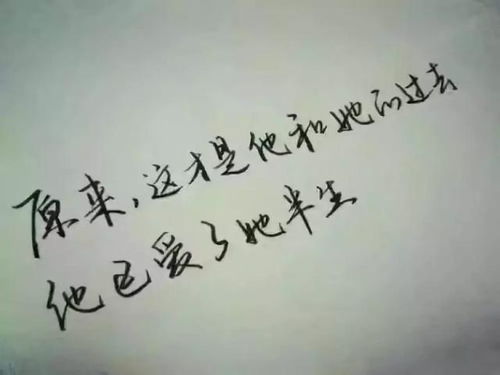 原来，这才是他和她的过去
他已爱了她半生